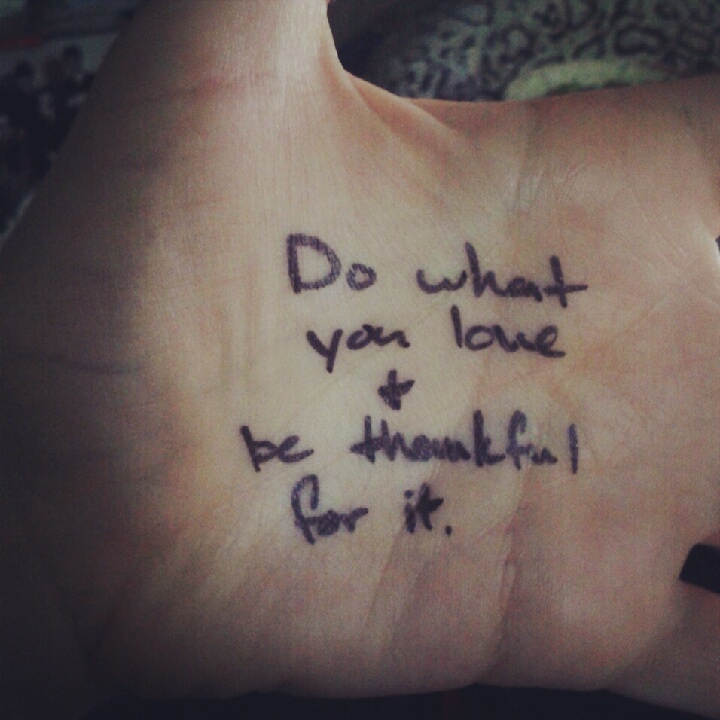 Do what
you love
+
be thankful
for it.